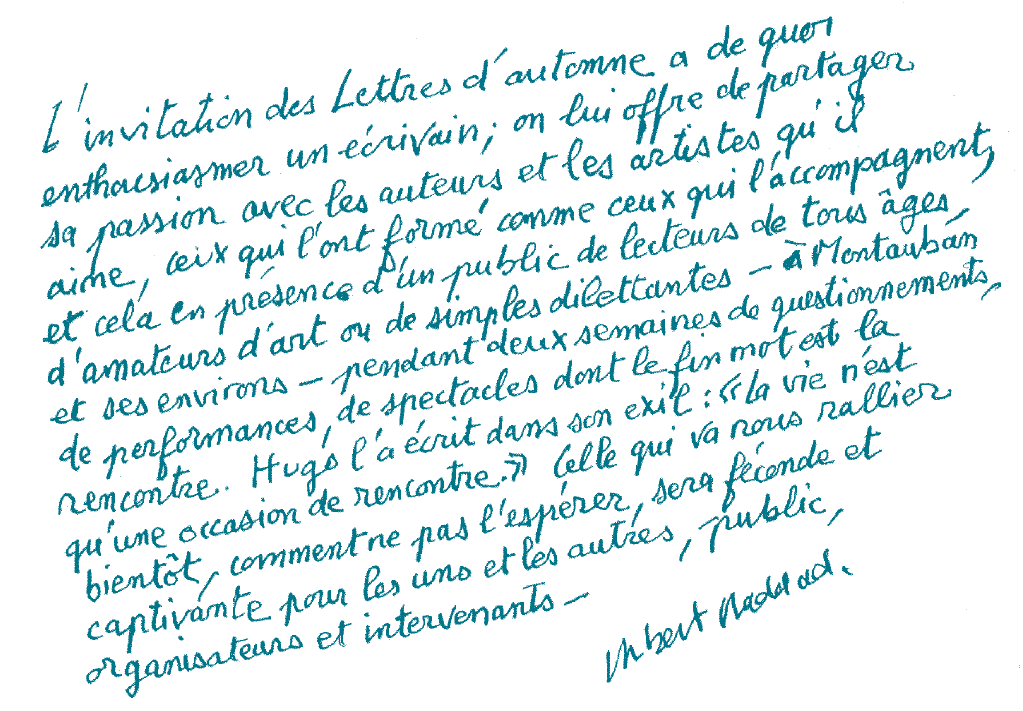 L'invitation des Lettres d'automne a de quoi
enthousiasmer un écrivain ; on lui offre de partager
sa passion avec les auteurs et les artistes qu'il
aime, ceux qui l'ont formé comme ceux qui l'accompagnent,
et cela en présence d'un public de lecteurs de tous âges,
d'amateurs d'art ou de simples dilettantes – à Montauban
et ses environs – pendant deux semaines de questionnements,
de performances, de spectacles dont le fin mot est la
rencontre. Hugo l'a écrit dans son exil : « la vie n'est
qu'une occasion de rencontre. » Celle qui va nous rallier
bientôt, comment ne pas l'espérer, sera féconde et
captivante pour les uns et les autres, public,
organisateurs et intervenants –
Hubert Haddad.